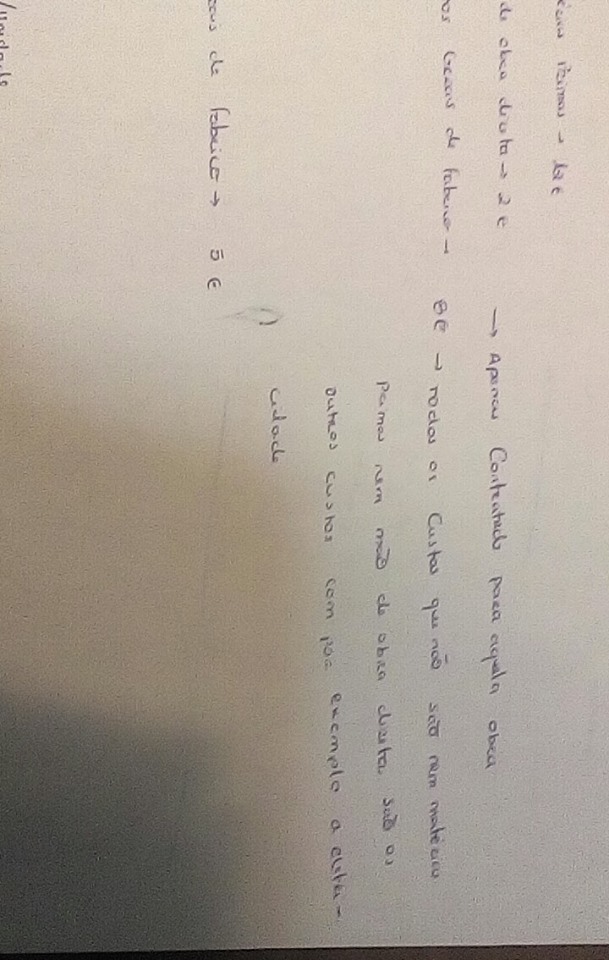 Primas → 12 €
de obra direta → 2 € → Apenas Contratado para aquela obra
os Gerais de fabrico → 8€ → Todos os Custos que não são nem matéria
Primas nem mão de obra direta são os
outros custos com por exemplo a eletri-
cidade
de fabrico → 5 €
/unidade